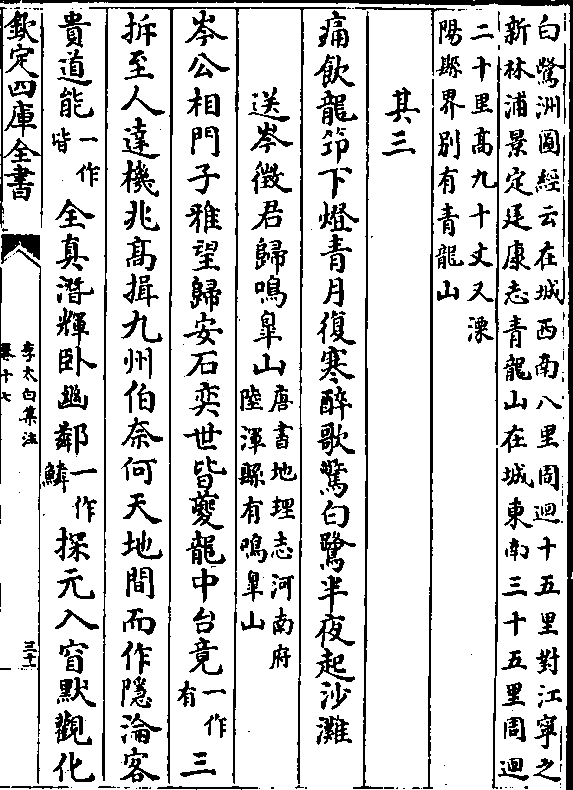 白鷺洲圖經云在城西南八里周迴十五里對江寧之
新林浦景定建康志青龍山在城東南三十五里周迴
二十里高九十丈又溧
陽縣界別有青龍山
其三
痛飲龍笻下燈青月復寒醉歌驚白鷺半夜起沙灘
送岑徵君歸鳴臯山
唐書地理志河南府
陸渾縣有鳴臯山
岑公相門子雅望歸安石奕世皆夔龍中台竟
一作
有
三
拆至人達機兆高揖九州伯奈何天地間而作隱淪客
貴道能
一作
皆
全真潛輝卧幽鄰
一作
鱗
探元入窅默觀化
欽定四庫全書
李太白集注
卷十七
三十